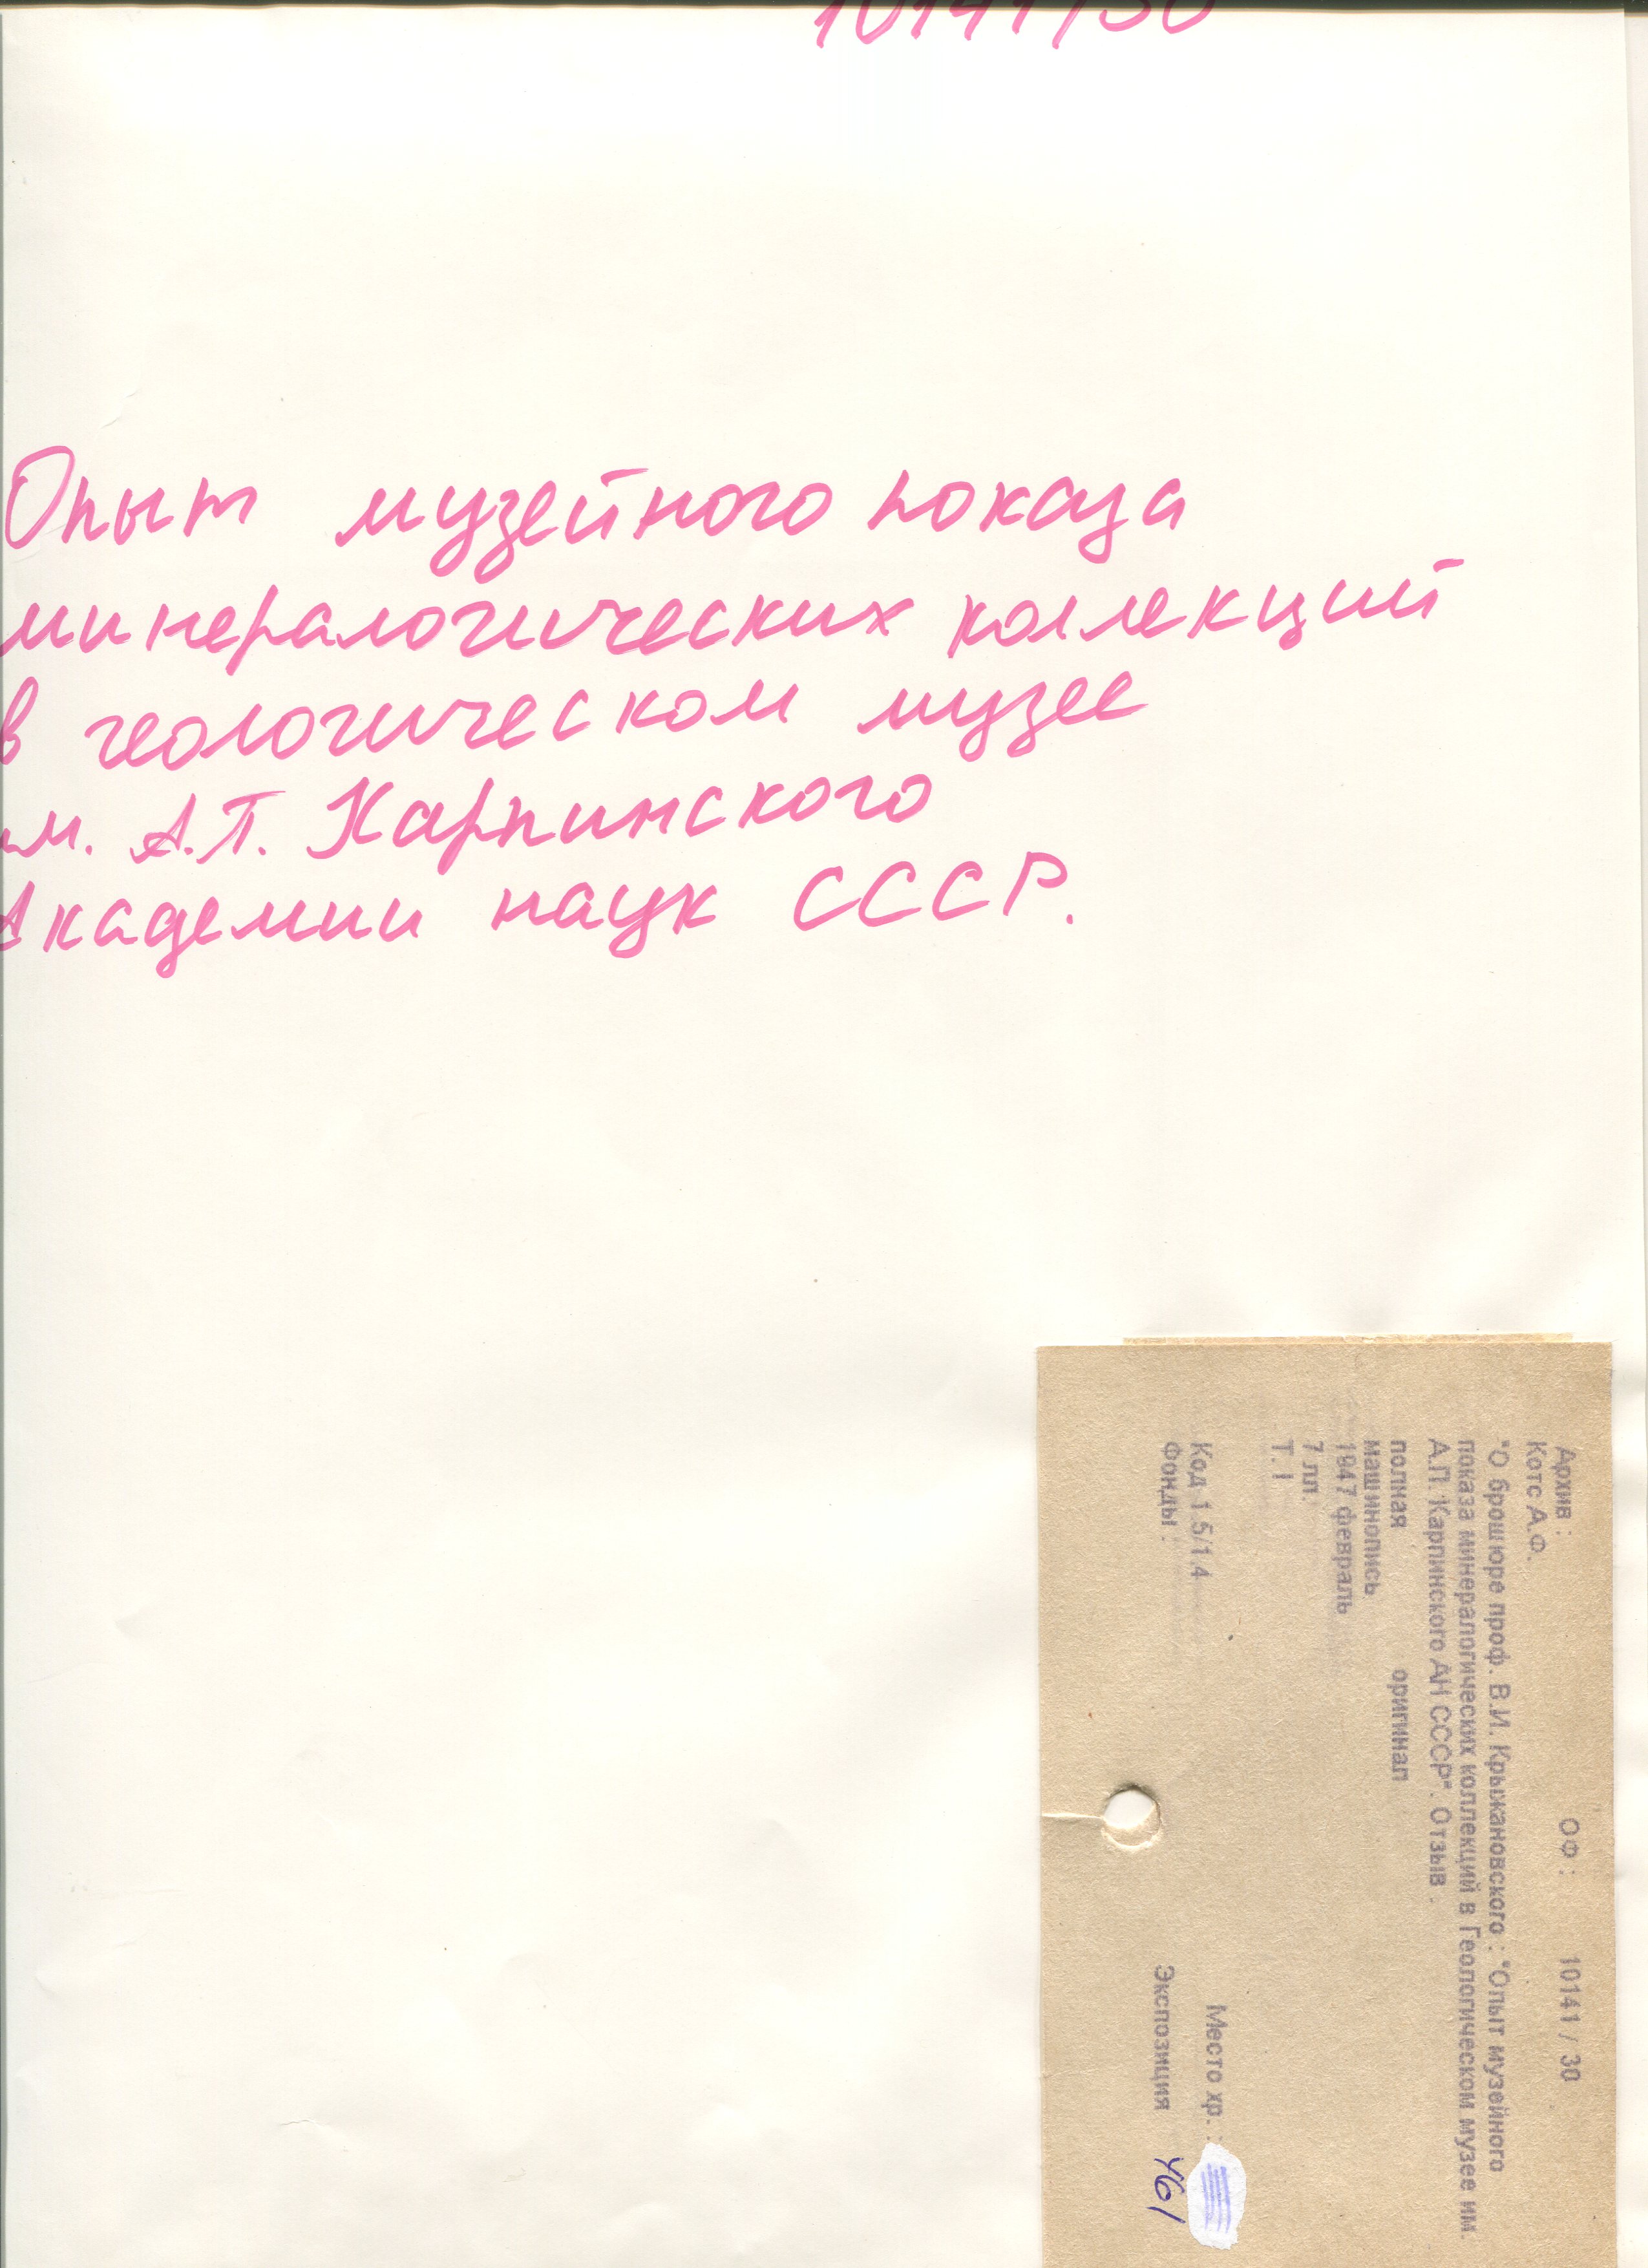 10141/30
Опыт музейного показа
минералогических коллекций
в геологическом музее
им. А.П. Карпинского
Академии наук СССР.
Архив : ОФ : 10141 / 30
Котс А.Ф.
"О брошюре проф. В.И. Крыжановского : "Опыт музейного
показа минералогических коллекций в Геологическом музее им.
А.П. Карпинского АН СССР". Отзыв .
полная оригинал
машинопись
1947 февраль
7 лл.
Т. I
Код 1.5/14 Место хр. :
Фонды : Экспозиция